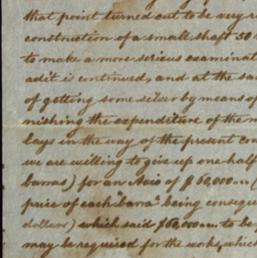 that point turned out to be very r
construction of a small shaft 50
to make a more serious examinat
adit is continued, and at the sa
of getting some silver by means o
nishing the expenditure of the m
lays in the way of the present con
we are willing to give up one half
barras) for an Avio of $60,000 (
price of each "barra" being consequ
dollars) which said $60,000 to be
may be required for the works, which